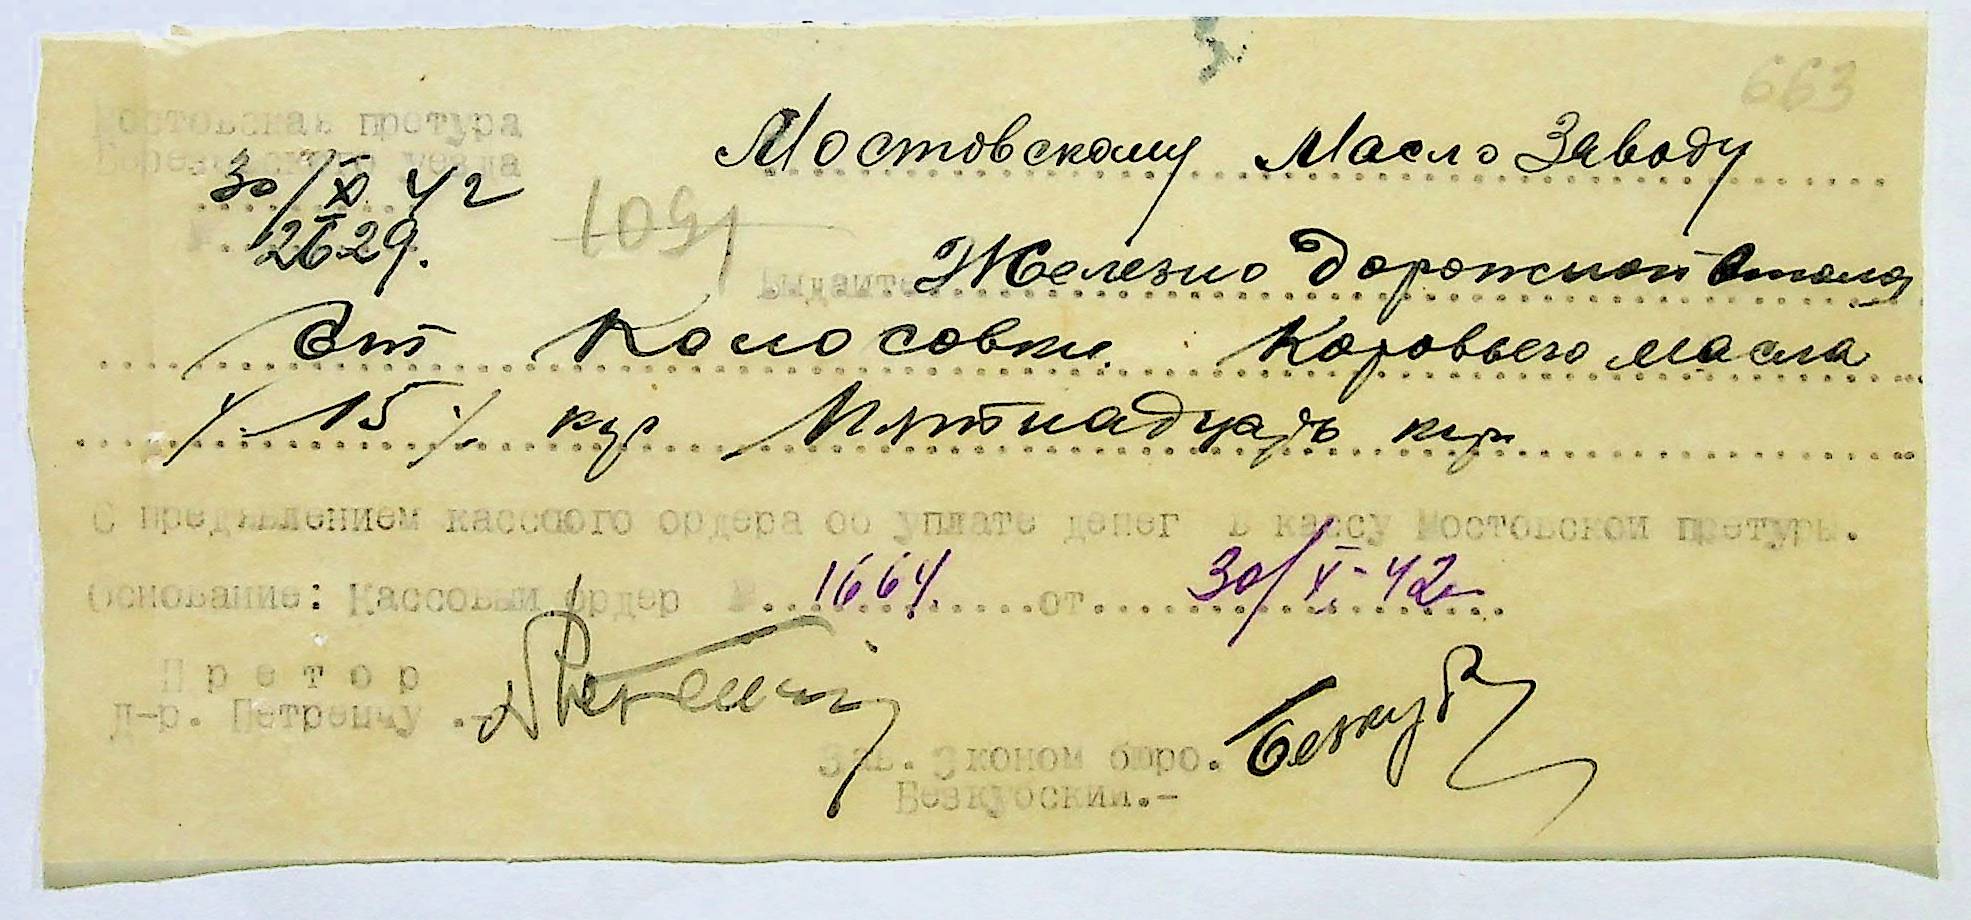 663
Мостовская претура
Березовского уезда
30/XI 42
2629.
1091
Мостовскому Масло Заводу
Выдайте Железно Дорожной
Ст Колосовка Коровьего масла
/15/ кгр Пятнадцать кгр
С предявлением кассового ордера об уплате денег в кассу Мостовской претуры.
Основание: Кассовый ордер №....1664....от....30/XI-42г.
Претор
Д-р. Петренчу.-
Зав. Эконом бюро.
Безкубский.-